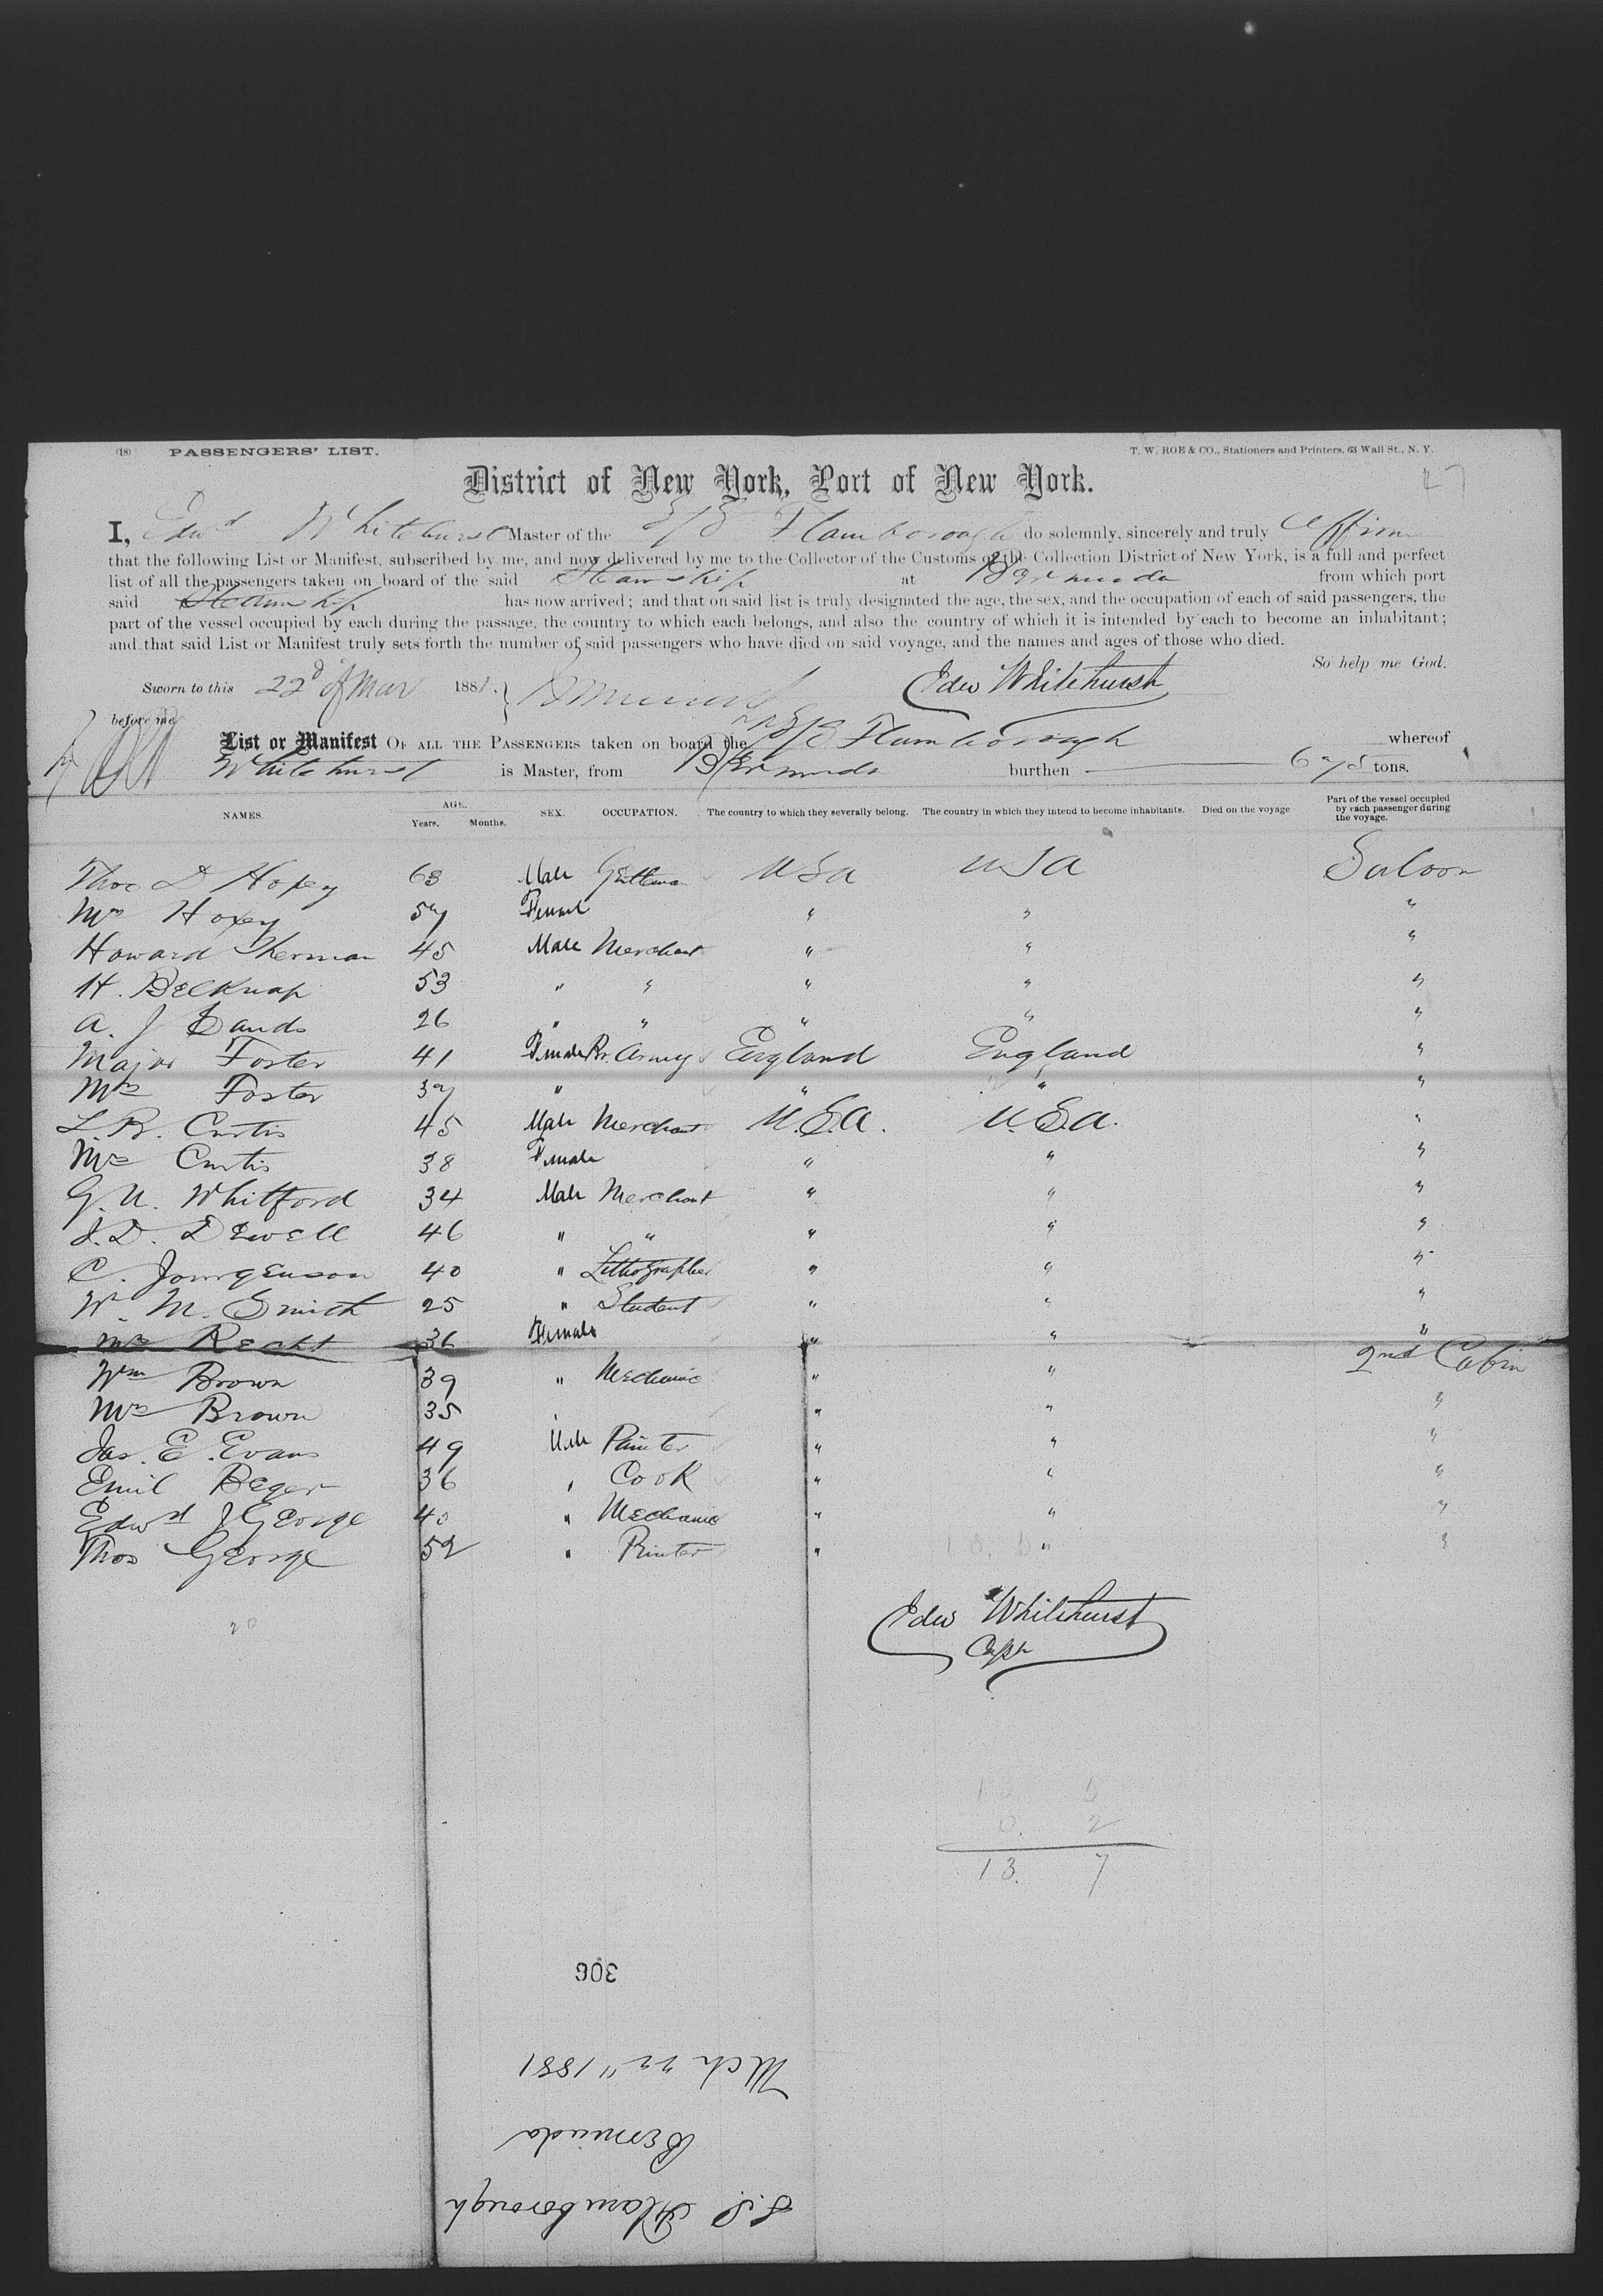 (18) PASSENGERS' LIST. T. W. ROE & CO., Stationers and Printers, 63 Wall St., N. Y.
District of New York, Port of New York.
I, Edwd Whitehurst Master of the S/S Flamborough do solemnly, sincerely and truly affirm
that the following List or Manifest, subscribed by me, and now delivered by me to the Collector of the Customs of the Collection District of New York, is a full and perfect
list of all the passengers taken on board of the said Steamship at Bermuda from which port
said Steamship has now arrived; and that on said list is truly designated the age, the sex, and the occupation of each of said passengers, the
part of the vessel occupied by each during the passage, the country to which each belongs, and also the country of which it is intended by each to become an inhabitant;
and that said List or Manifest truly sets forth the number of said passengers who have died on said voyage, and the names and ages of those who died.
So help me God.
Sworn to this 22d of Mar 1881. Edw Whitehurst
before me
List or Manifest OF ALL THE PASSENGERS taken on board the S/S Flamborough whereof
Whitehurst is Master, from Bermuda burthen tons.
NAMES. AGE. Years. Months. SEX. OCCUPATION. The country to which they severally belong. The country in which they intend to become inhabitants. Died on the voyage Part of the vessel occupied by each passenger during the voyage.
Thos D Hoxey 63 Male Gentleman USA USA Saloon
Mrs Hoxey 57 Female " " "
Howard Sherman 45 Male Merchant " " "
H. Belknap 53 " " " " "
A. J Sands 26 " " " " "
Major Foster 41 Female Br. Army England England "
Mrs Foster 37 " " " "
L. B. Curtis 45 Male Merchant U.S.A. U.S.A. "
Mrs Curtis 38 Female " " "
G. U. Whitford 34 Male Merchant " " "
J. D. Dewell 46 " " " " "
C. Jourgenson 40 " Lithographer " " "
Wm M. Smith 25 " Student " " "
Mrs Recht 36 Female " " "
Wm Brown 39 " Mechanic " " 2nd Cabin
Mrs Brown 35 " " "
Jas. E. Evans 49 Male Painter " " "
Emil Beger 36 " Cook " " "
Edwd J George 40 " Mechanic " " "
Thos George 52 " Printer " " "
20
Edw Whitehurst
Capt
0. 2
13. 7
306
Mch 22" 1881
Bermuda
S.S. Flamborough